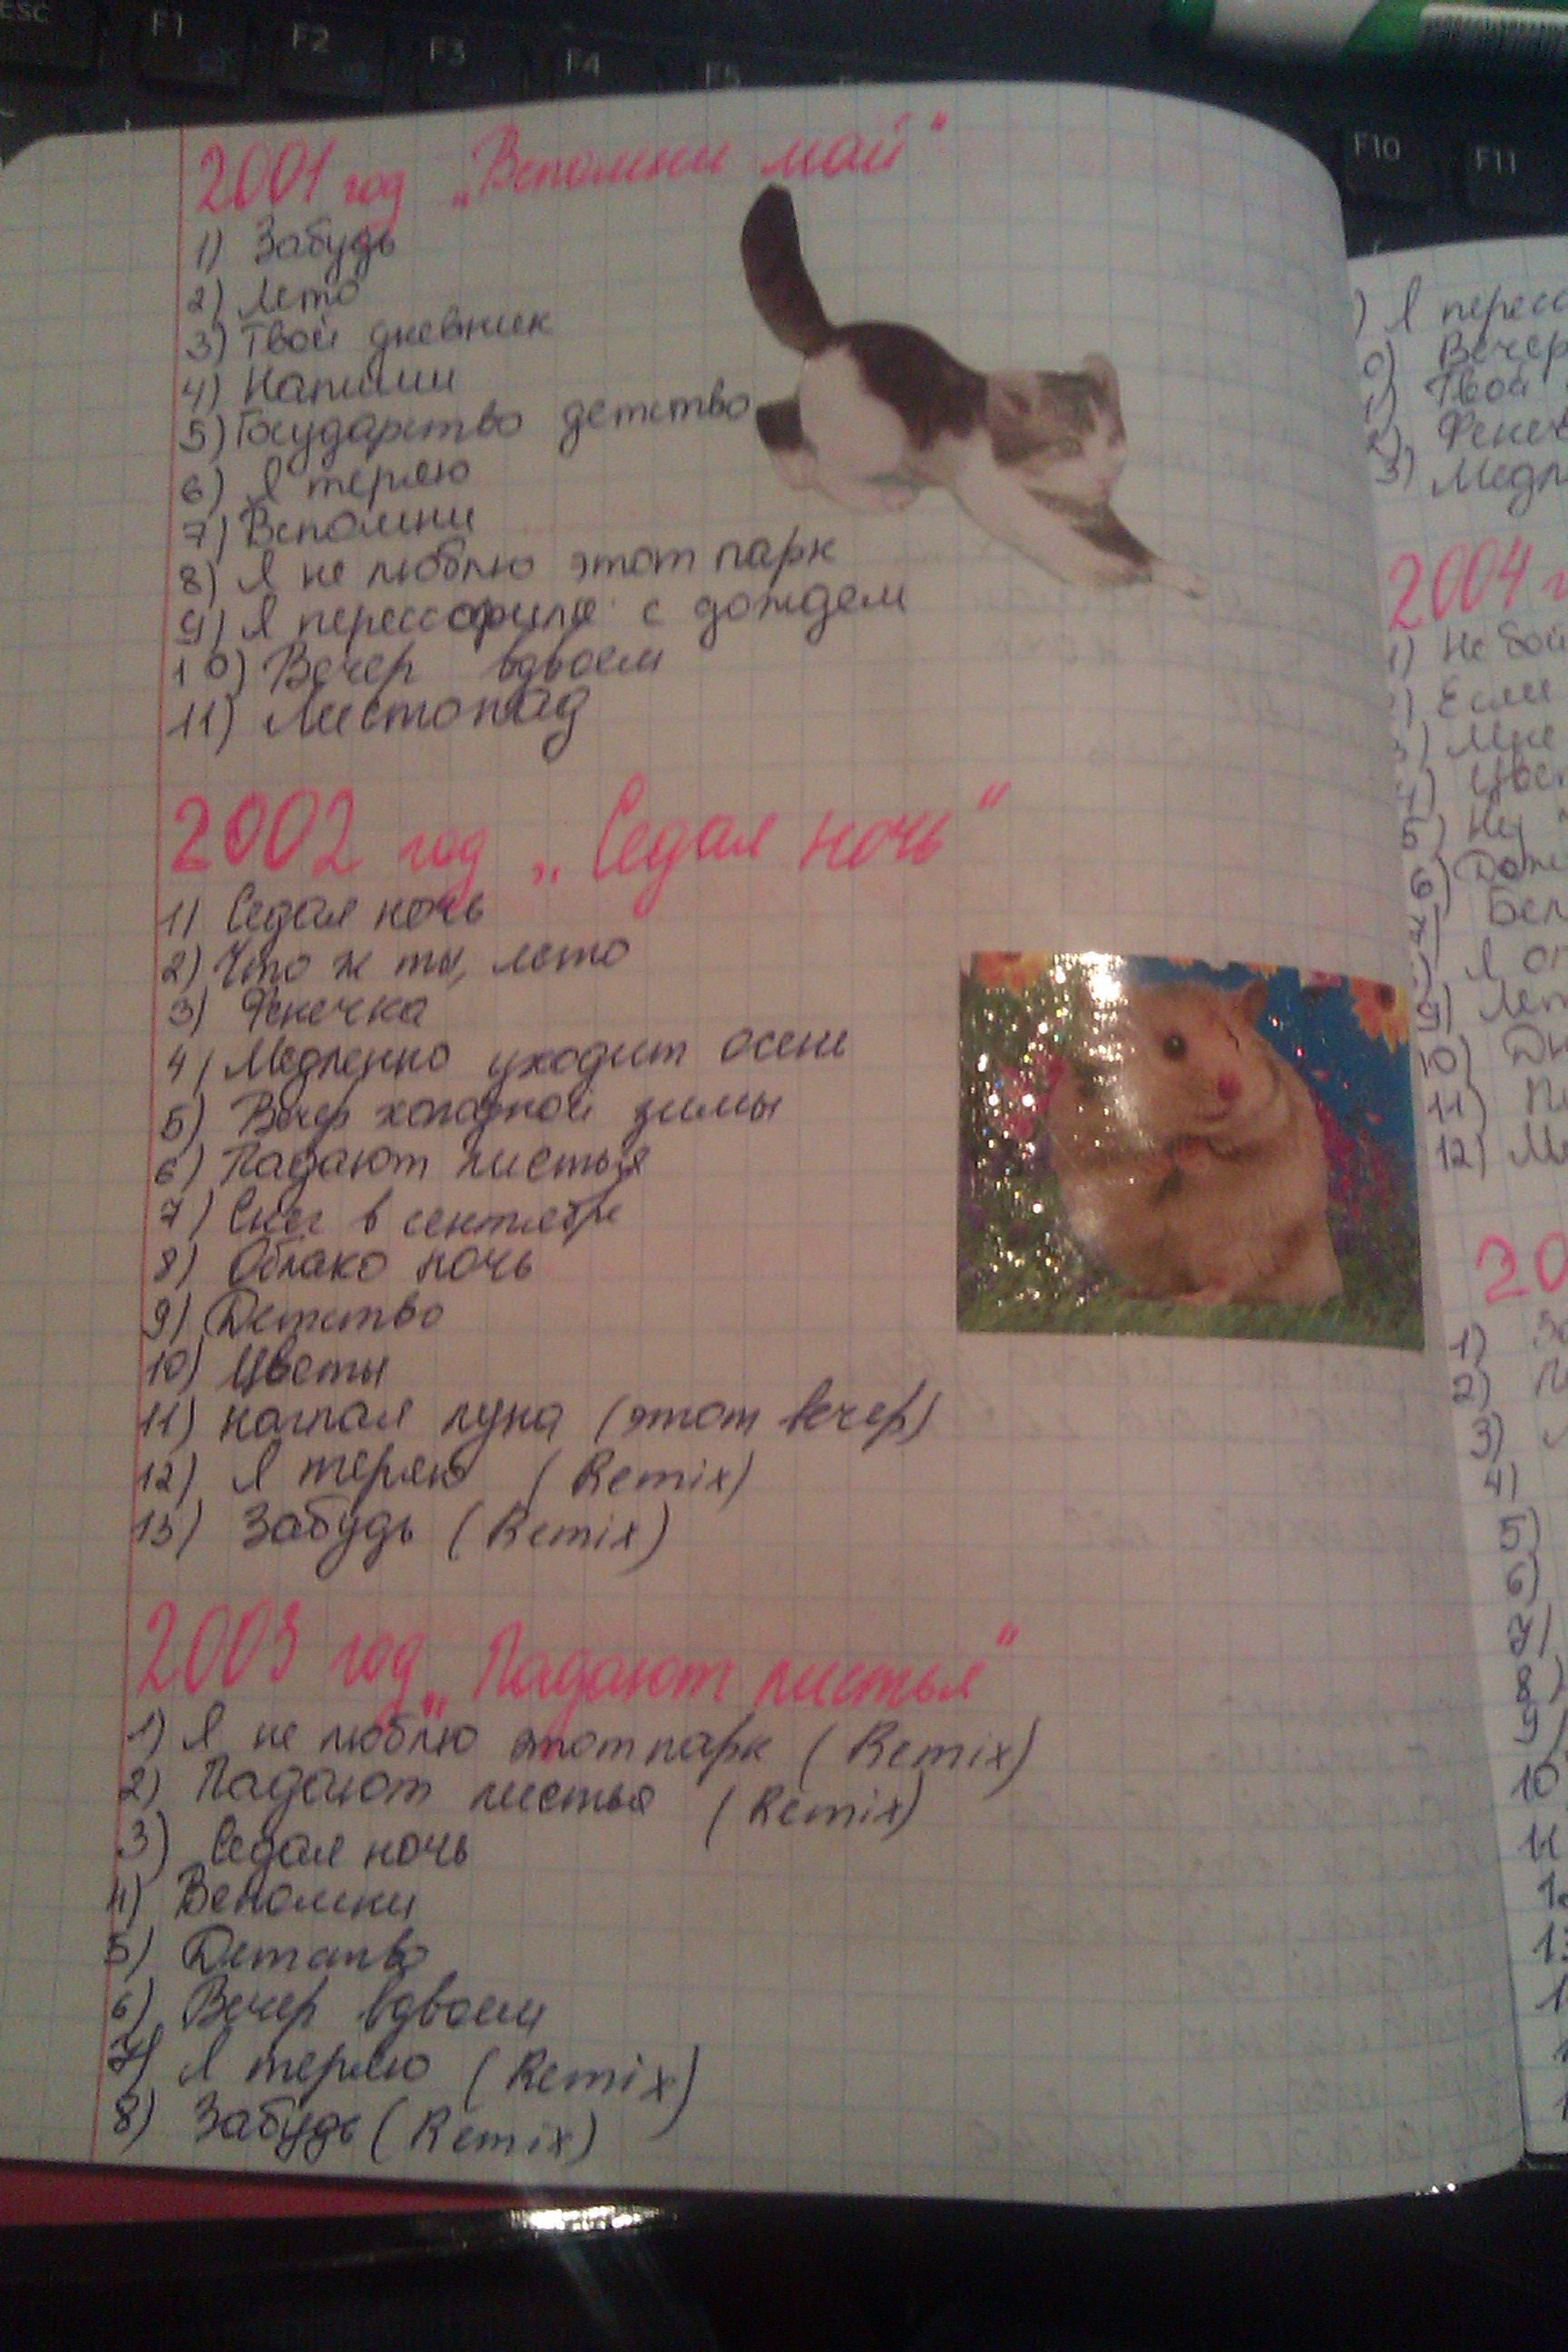 ESC F1 F2 F3 F4 F5
F10 F11
2001 год „Вспомни май"
1) Забудь
2) Лето
3) Твой дневник
4) Напиши
5) Государство детство
6) Я теряю
7) Вспомни
8) Я не люблю этот парк
9) Я перессорился с дождем
10) Вечер вдвоем
11) Листопад
2002 год „Седая ночь"
1) Седая ночь
2) Что ж ты, лето
3) Фенечка
4) Медленно уходит осень
5) Вечер холодной зимы
6) Падают листья
7) Снег в сентябре
8) Облако ночь
9) Детство
10) Цветы
11) наглая луна (этот вечер)
12) Я теряю (Remix)
13) Забудь (Remix)
2003 год „Падают листья"
1) Я не люблю этот парк (Remix)
2) Падают листья (Remix)
3) Седая ночь
4) Вспомни
5) Детство
6) Вечер вдвоем
7) Я теряю (Remix)
8) Забудь (Remix)
) Я
Вечер
Твой
3)
2004
1) Не
) Если
3) Мне
4)
5)
6)
7)
) Я
9)
10)
11)
12)
20
1)
2)
3)
4)
5)
6)
7)
8)
9)
10
11